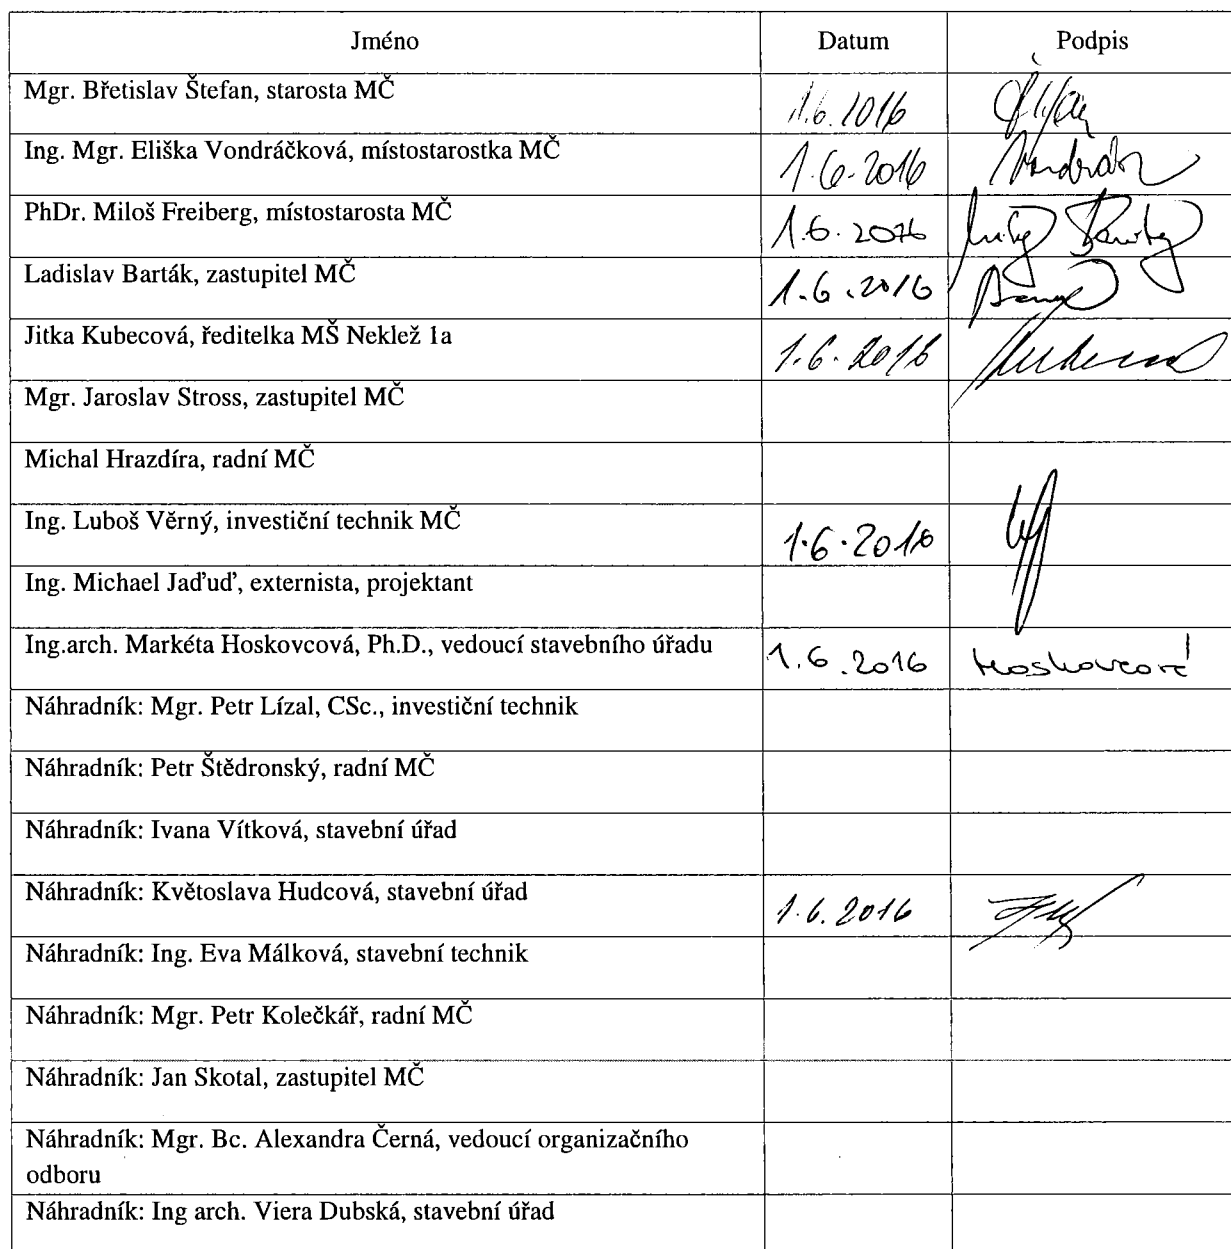 Jméno Datum Podpis
Mgr. Břetislav Štefan, starosta MČ 1.6.2016
Ing. Mgr. Eliška Vondráčková, místostarostka MČ 1.6.2016
PhDr. Miloš Freiberg, místostarosta MČ 1.6.2016
Ladislav Barták, zastupitel MČ 1.6.2016
Jitka Kubecová, ředitelka MŠ Neklež 1a 1.6.2016
Mgr. Jaroslav Stross, zastupitel MČ
Michal Hrazdíra, radní MČ
Ing. Luboš Věrný, investiční technik MČ 1.6.2016
Ing. Michael Jaďuď, externista, projektant
Ing.arch. Markéta Hoskovcová, Ph.D., vedoucí stavebního úřadu 1.6.2016 Hoskovcová
Náhradník: Mgr. Petr Lízal, CSc., investiční technik
Náhradník: Petr Štědronský, radní MČ
Náhradník: Ivana Vítková, stavební úřad
Náhradník: Květoslava Hudcová, stavební úřad 1.6.2016
Náhradník: Ing. Eva Málková, stavební technik
Náhradník: Mgr. Petr Kolečkář, radní MČ
Náhradník: Jan Skotal, zastupitel MČ
Náhradník: Mgr. Bc. Alexandra Černá, vedoucí organizačního
odboru
Náhradník: Ing arch. Viera Dubská, stavební úřad